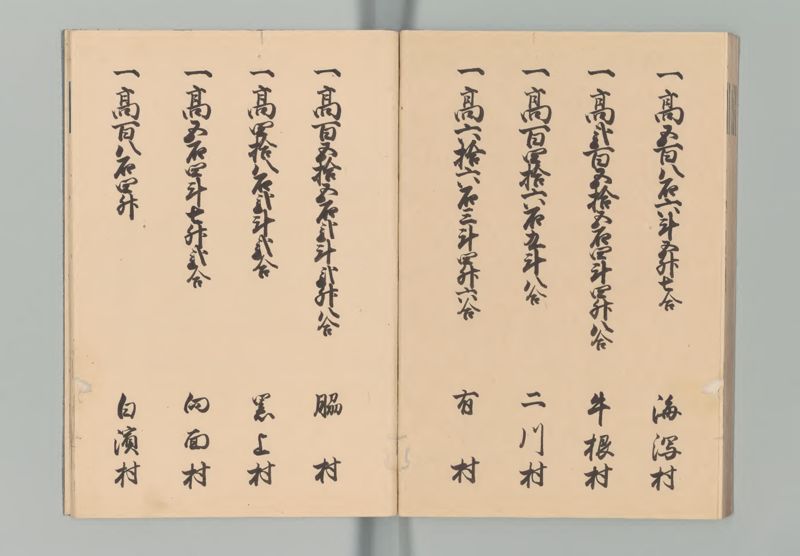 一高五百八石六斗五升七合 海潟村
一高弐百五拾五石四斗四升八合 牛根村
一高百四拾六石五斗八合 二川村
一高六拾六石三斗四升六合 有村
一高百五拾五石弐斗弐升八合 脇村
一高四拾八石弐斗弐合 黒上村
一高五石四斗七升弐合 向面村
一高百八石四升 白濱村